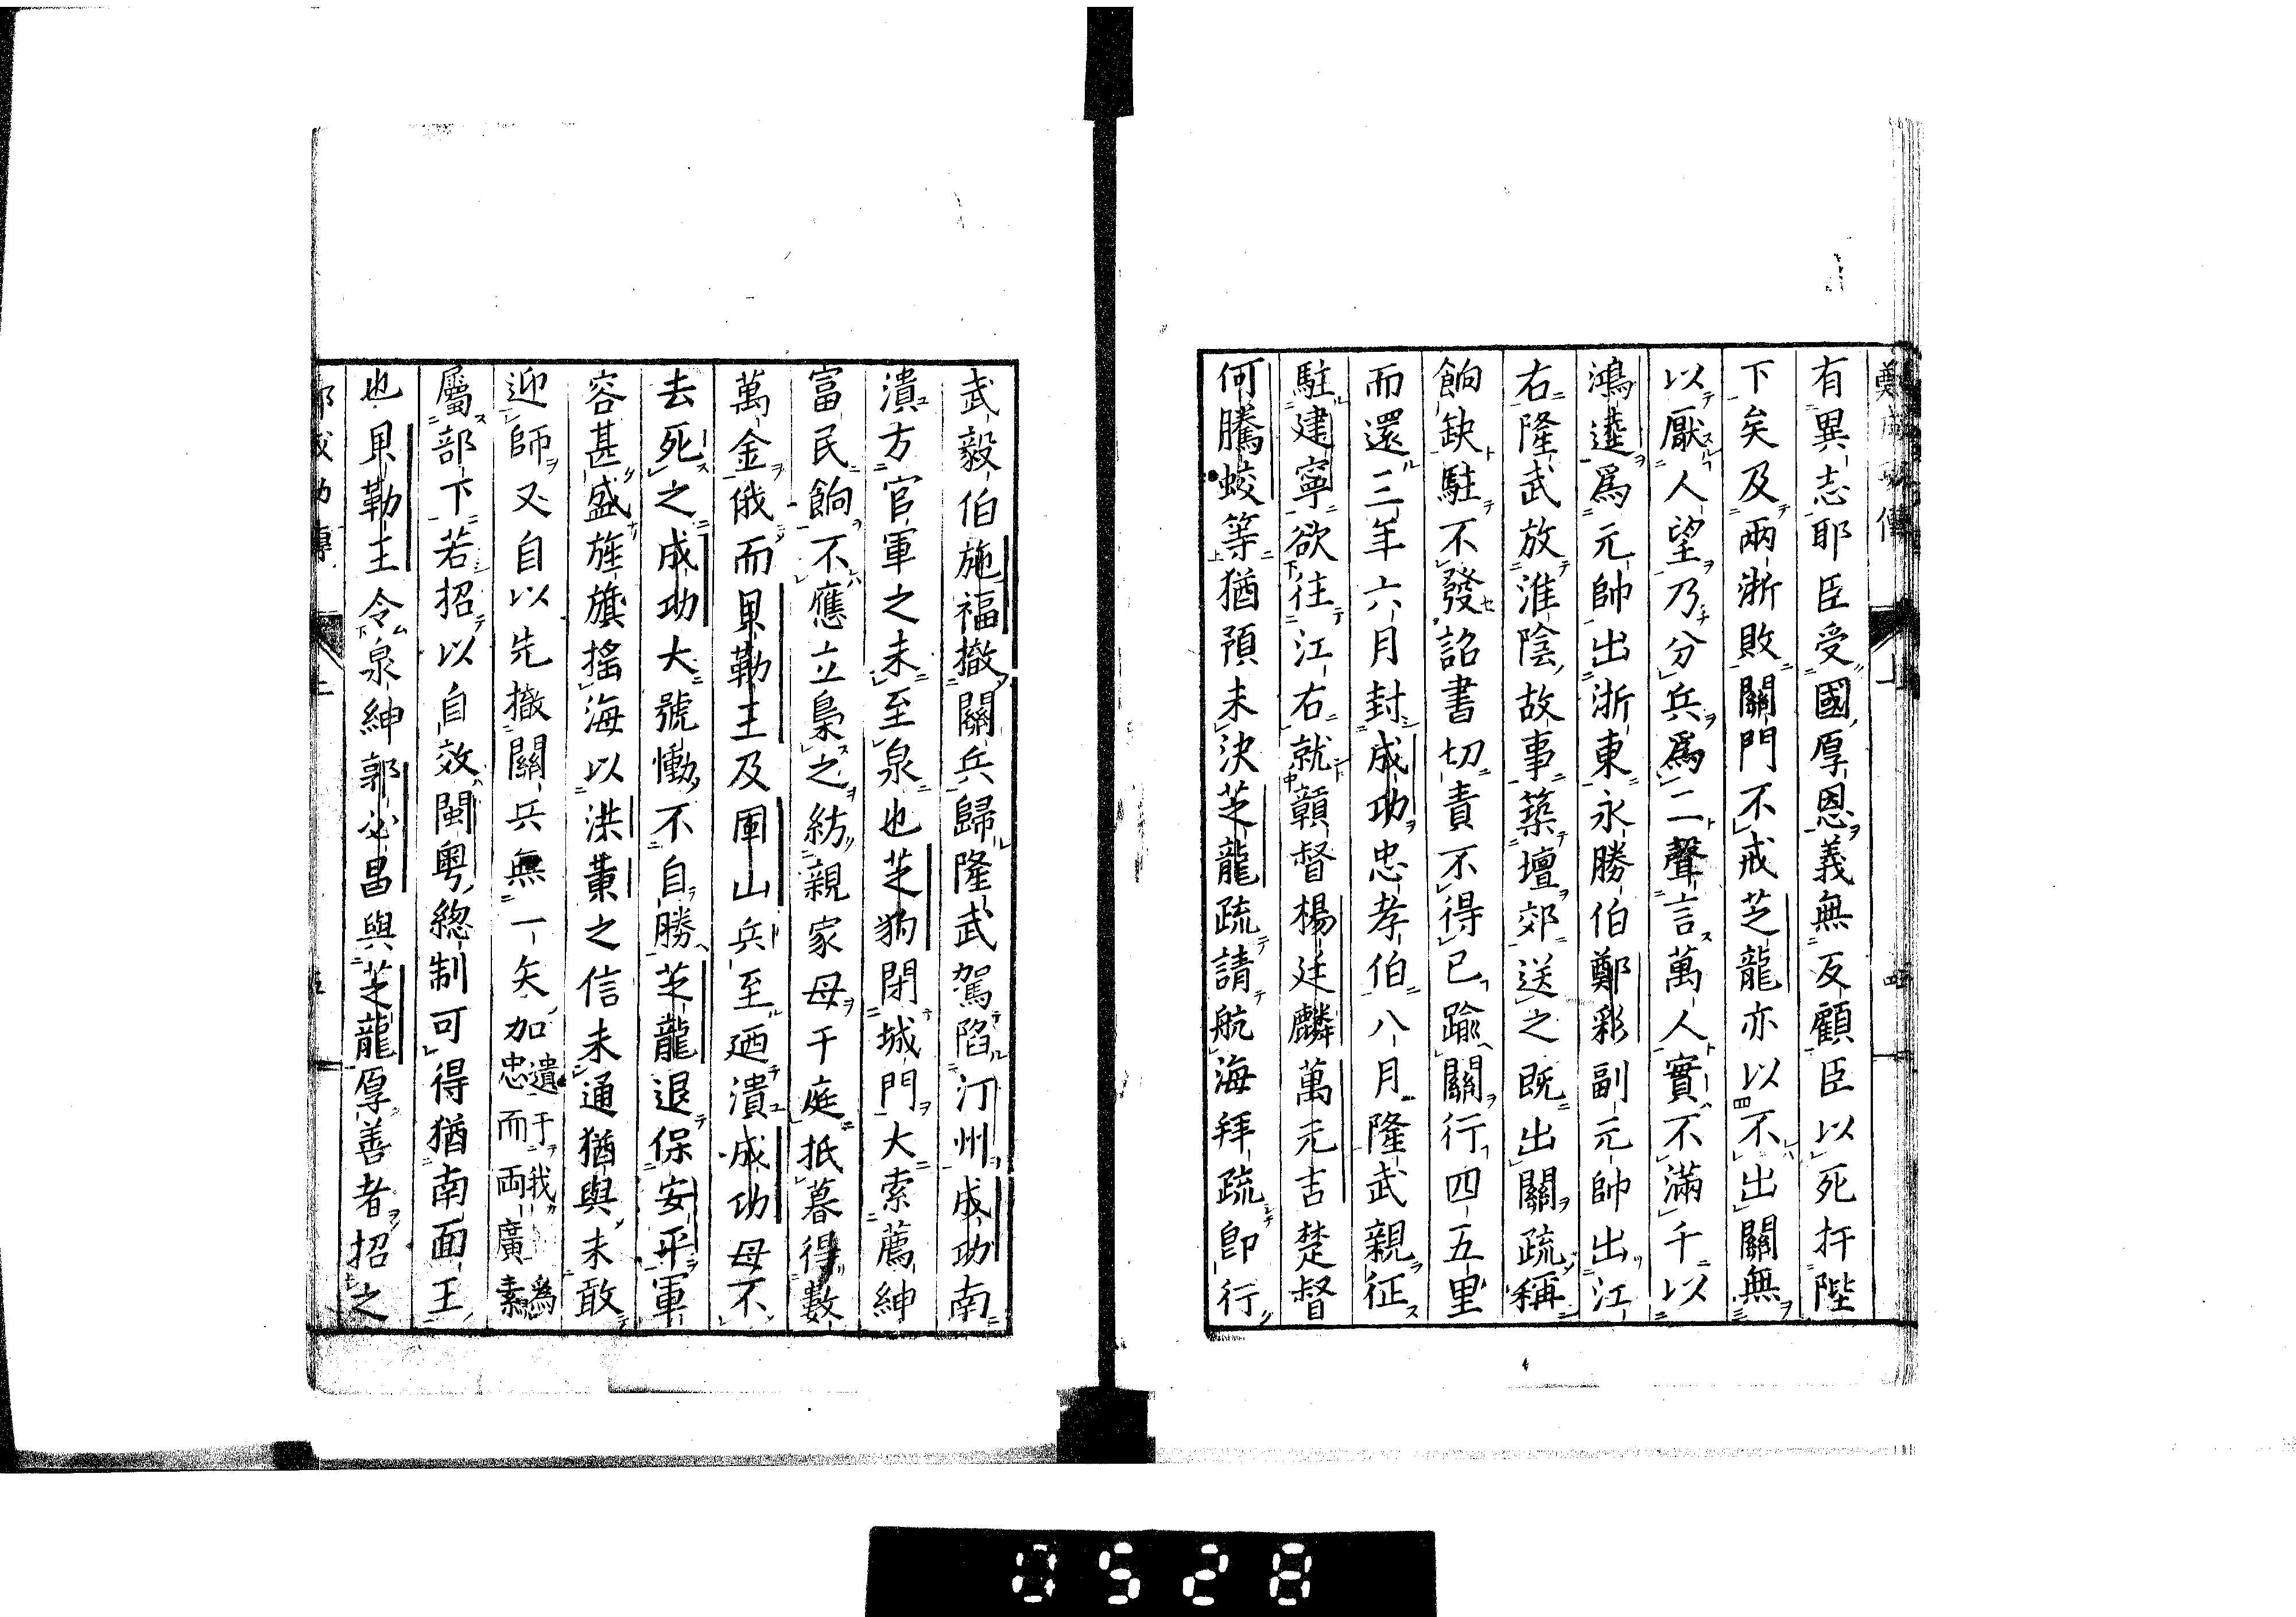 鄭成功傳
有異志耶臣受國厚恩義無反顧臣以死扞陛
下矣及兩浙敗關門不戒芝龍亦以不出關無
以厭人望乃分兵爲二聲言萬人實不滿千以
鴻逵爲元帥出浙東永勝伯鄭彩副元帥出江
右隆武放淮陰故事築壇郊送之既出關疏稱
餉缺駐不發詔書切責不得已踰關行四五里
而還三年六月封成功忠孝伯八月隆武親征
駐建寧欲往江右就贛督楊廷麟萬元吉楚督
何騰蛟等猶預未決芝龍疏請航海拜疏即行
武毅伯施福撤關兵歸隆武駕陷汀州成功南
潰方官軍之未至泉也芝豹閉城門大索薦紳
富民餉不應立梟之紡親家母于庭抵暮得數
萬金俄而貝勒王及固山兵至迺潰成功母不
去死之成功大號慟不自勝芝龍退保安平軍
容甚盛旌旗搖海以洪黄之信未通猶與未敢
迎師又自以先撤關兵無一矢加遺于我爲
忠而兩廣素
屬部下若招以自效閩粤總制可得猶南面王
也貝勒王令泉紳郭必昌與芝龍厚善者招之
鄭成功傳